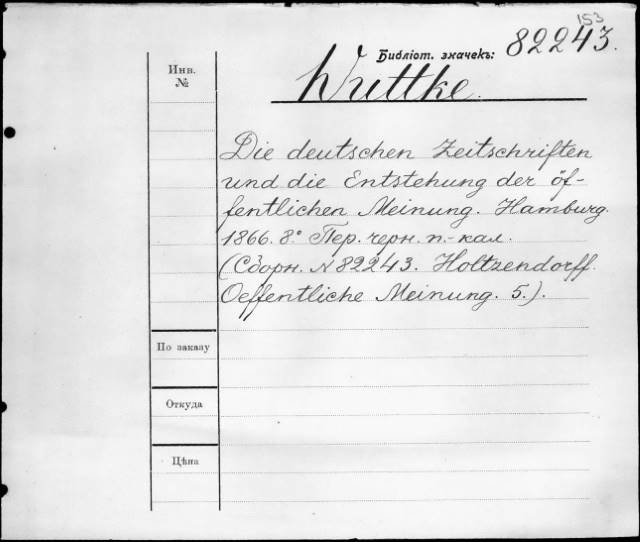 153
Библіот. значекъ: 82243.
Инв.
№
Wuttke.
Die deutschen Zeitschriften
und die Entstehung der öf-
fentlichen Meinung. Hamburg.
1866. 8.° Пер. черн. п.-кал.
(Сборн. № 82243. Holtzendorff.
Oeffentliche Meinung. 5.).
По заказу
Откуда
Цѣна